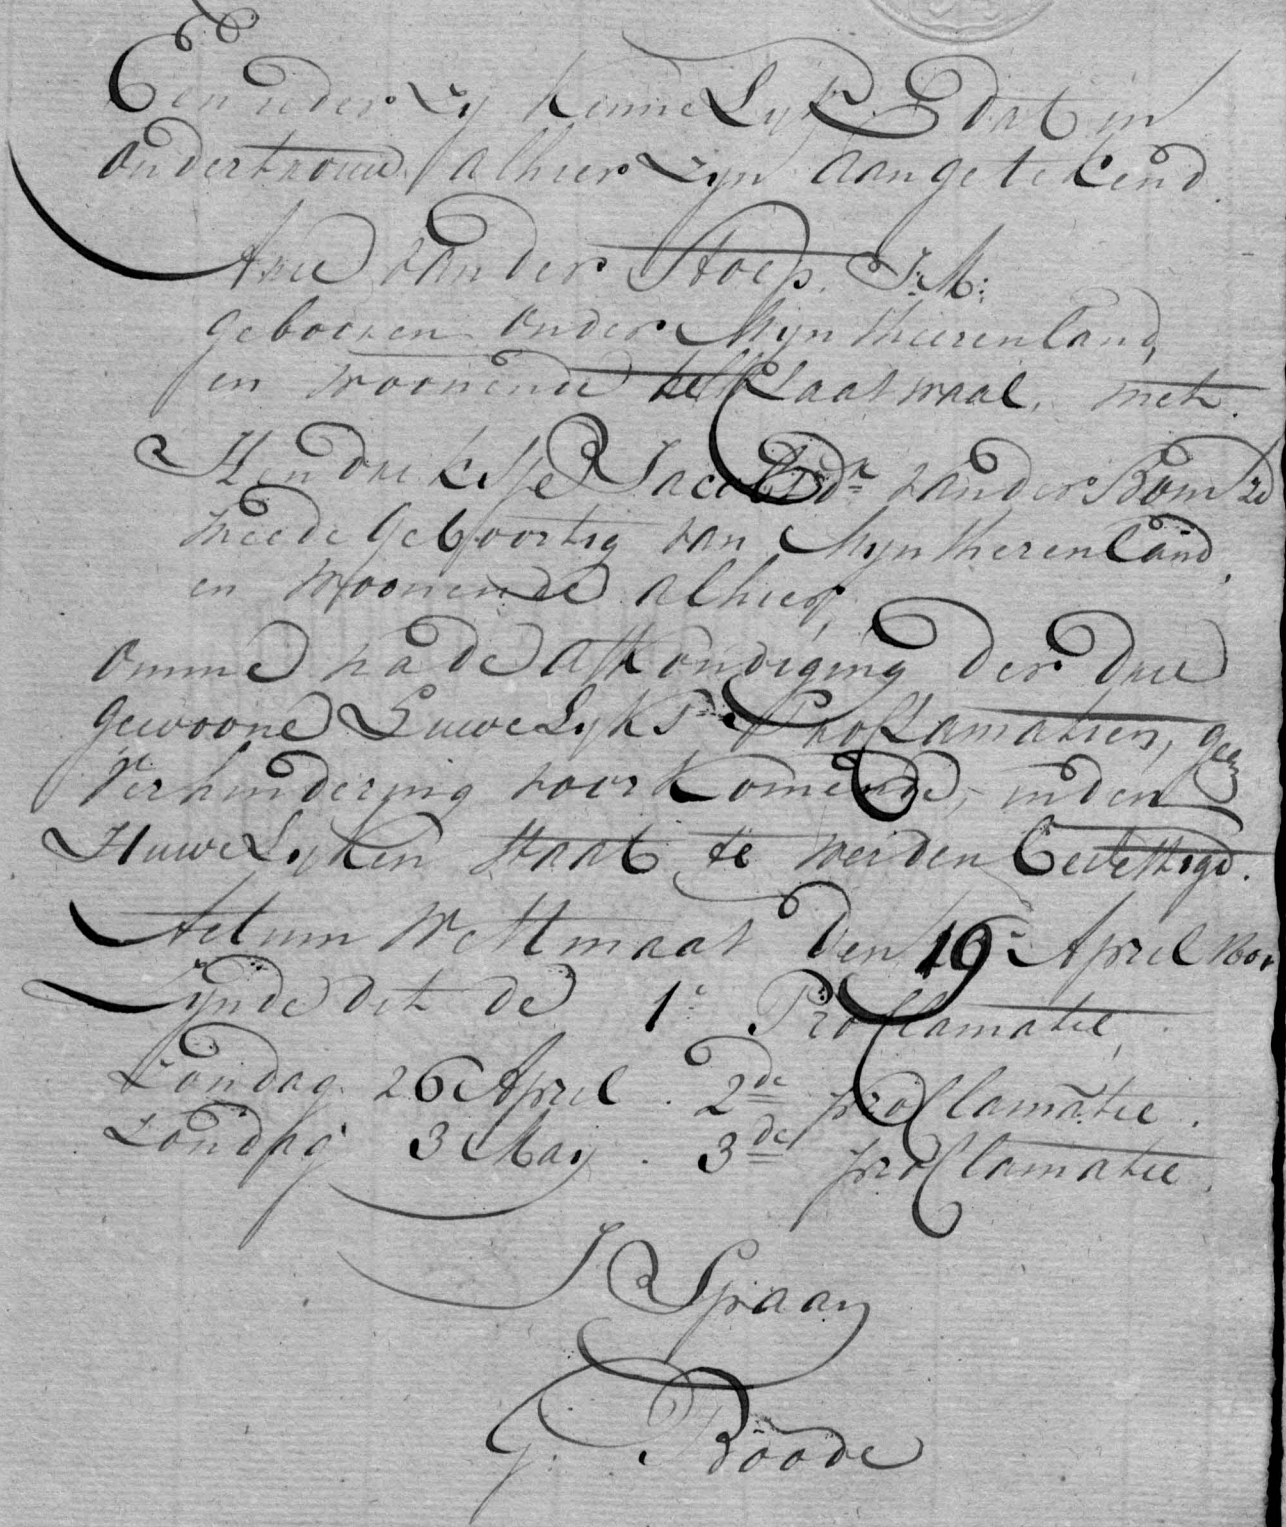 Een ieder zy kennelyk, dat in
ondertrouw alhier zyn aangetekend
Arie van der Stoep. J: M:
gebooren onder Mynsheerenland,
en woonende te Klaaswaal, met.
Hendrikje Jacobsdr. van der Bom
meede geboortig van Mynsherenland,
en woonende alhier,
omme na de afkondiging der drie
gewoone Huwelyks Proklamatien, geen
verhindering voorkomende, in den
Huwelyken Staat te werden bevestigd.
Actum Westmaas den 19e April 1801
Zynde dit de 1e Proclamatie,
Zondag 26 April. 2de proclamatie.
Zondag 3 May. 3de proclamatie.
J Spaan
G. Boode